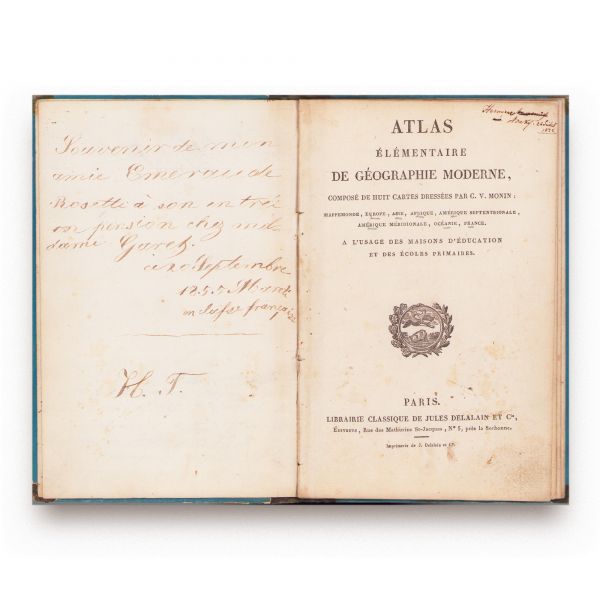 Souvenir de mon
amie Emeraude
Rosette à son entrée
en pension chez ma
dame Garet
ce 20 Septembre
1855
en classe française
H. T.
ATLAS
ÉLÉMENTAIRE
DE GÉOGRAPHIE MODERNE,
COMPOSÉ DE HUIT CARTES DRESSÉES PAR C. V. MONIN;
MAPPEMONDE, EUROPE, ASIE, AFRIQUE, AMÉRIQUE SEPTENTRIONALE,
AMÉRIQUE MÉRIDIONALE, OCÉANIE, FRANCE;
A L'USAGE DES MAISONS D'ÉDUCATION
ET DES ÉCOLES PRIMAIRES.
PARIS.
LIBRAIRIE CLASSIQUE DE JULES DELALAIN ET Cie,
ÉDITEURS, Rue des Mathurins St-Jacques, N° 5, près la Sorbonne.
Imprimerie de J. Delalain et Cie.